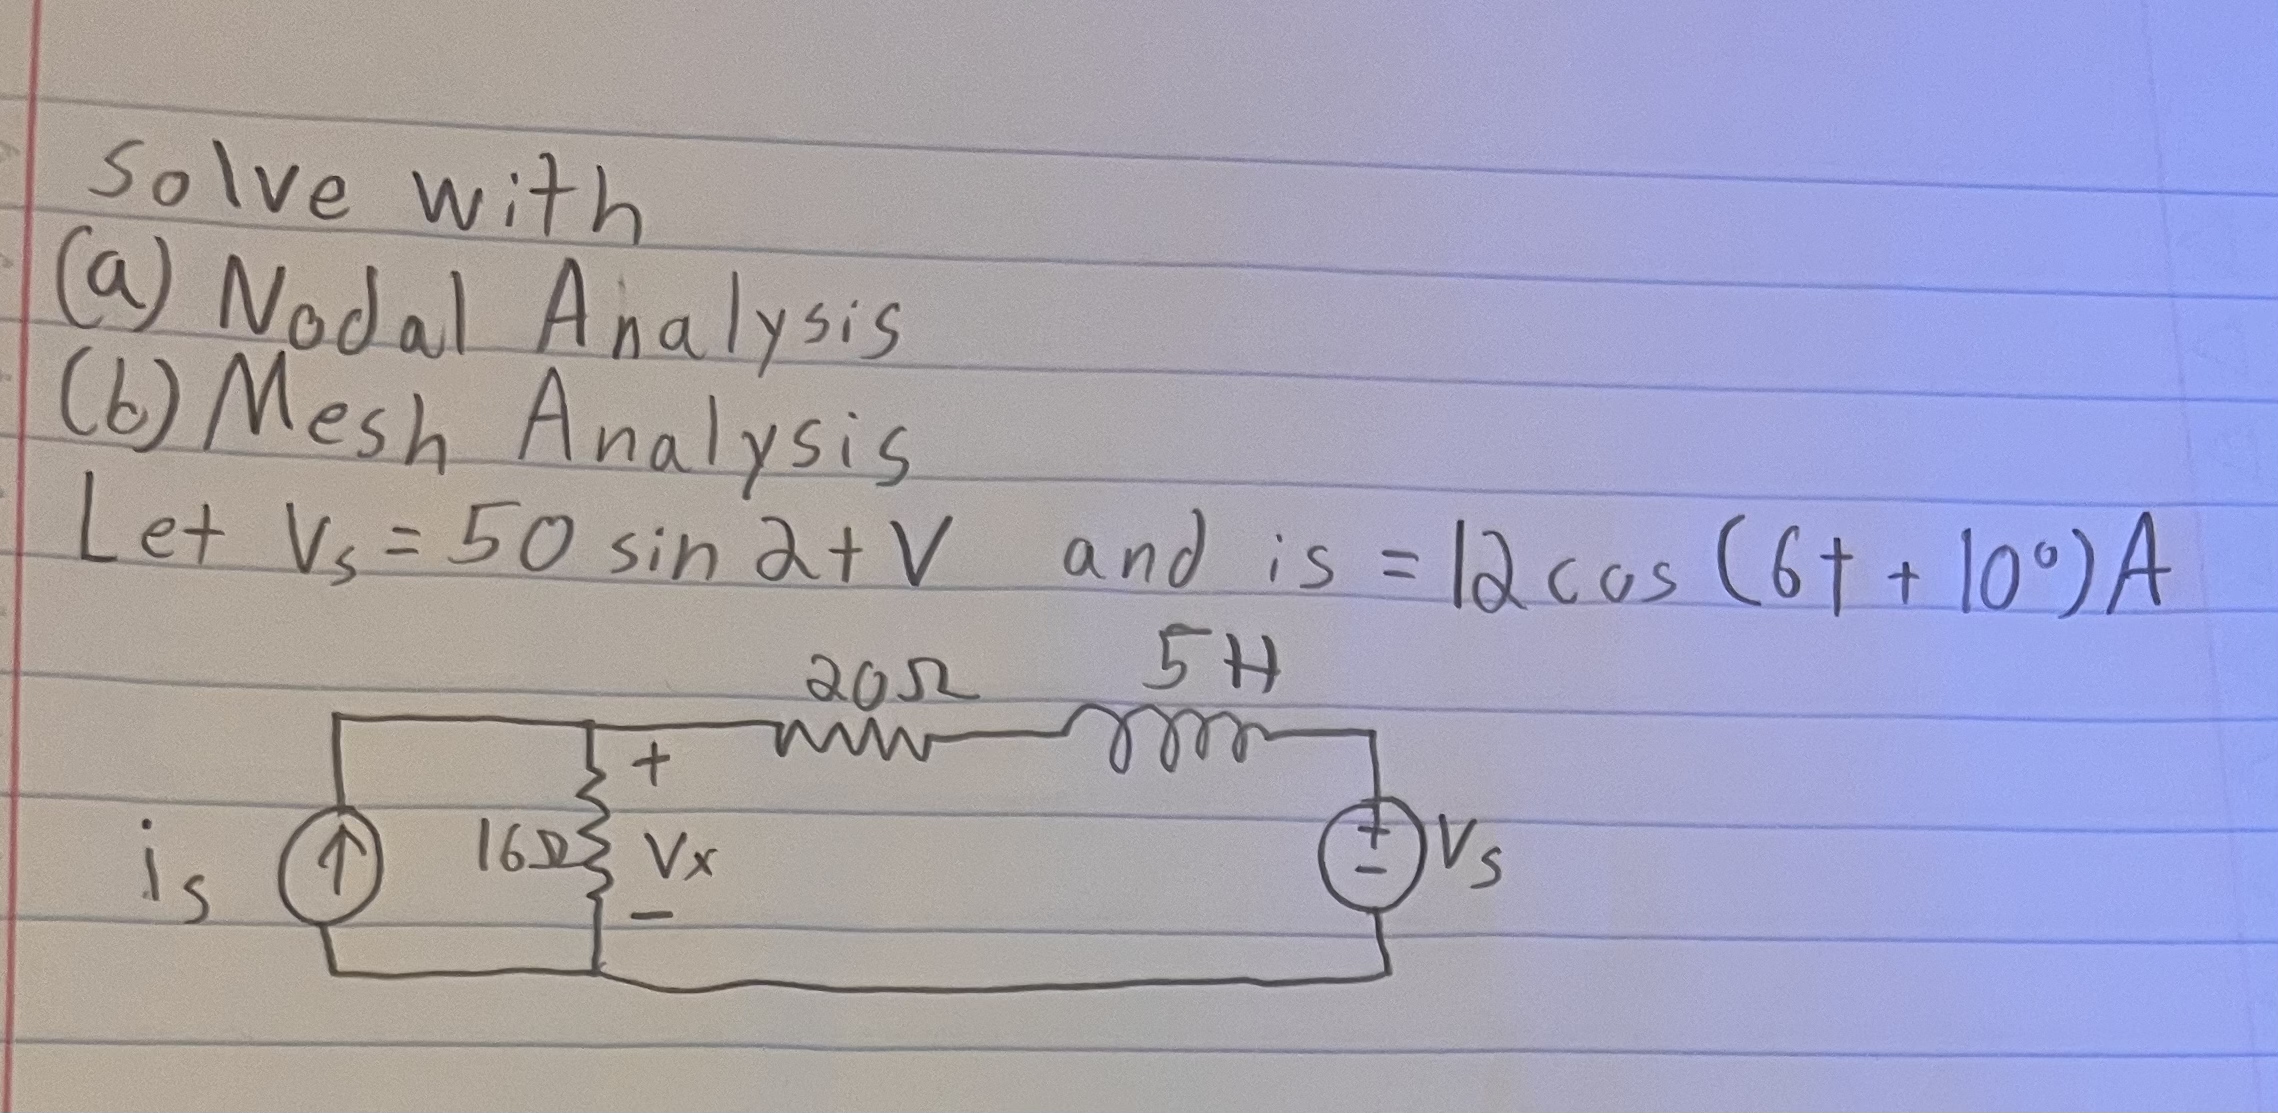 solve with
(a) Nodal Analysis
(b) Mesh Analysis
Let Vs = 50 sin 2t V and is = 12 cos (6t + 10°) A
20Ω 5H
+
is 16Ω Vx + - Vs
-